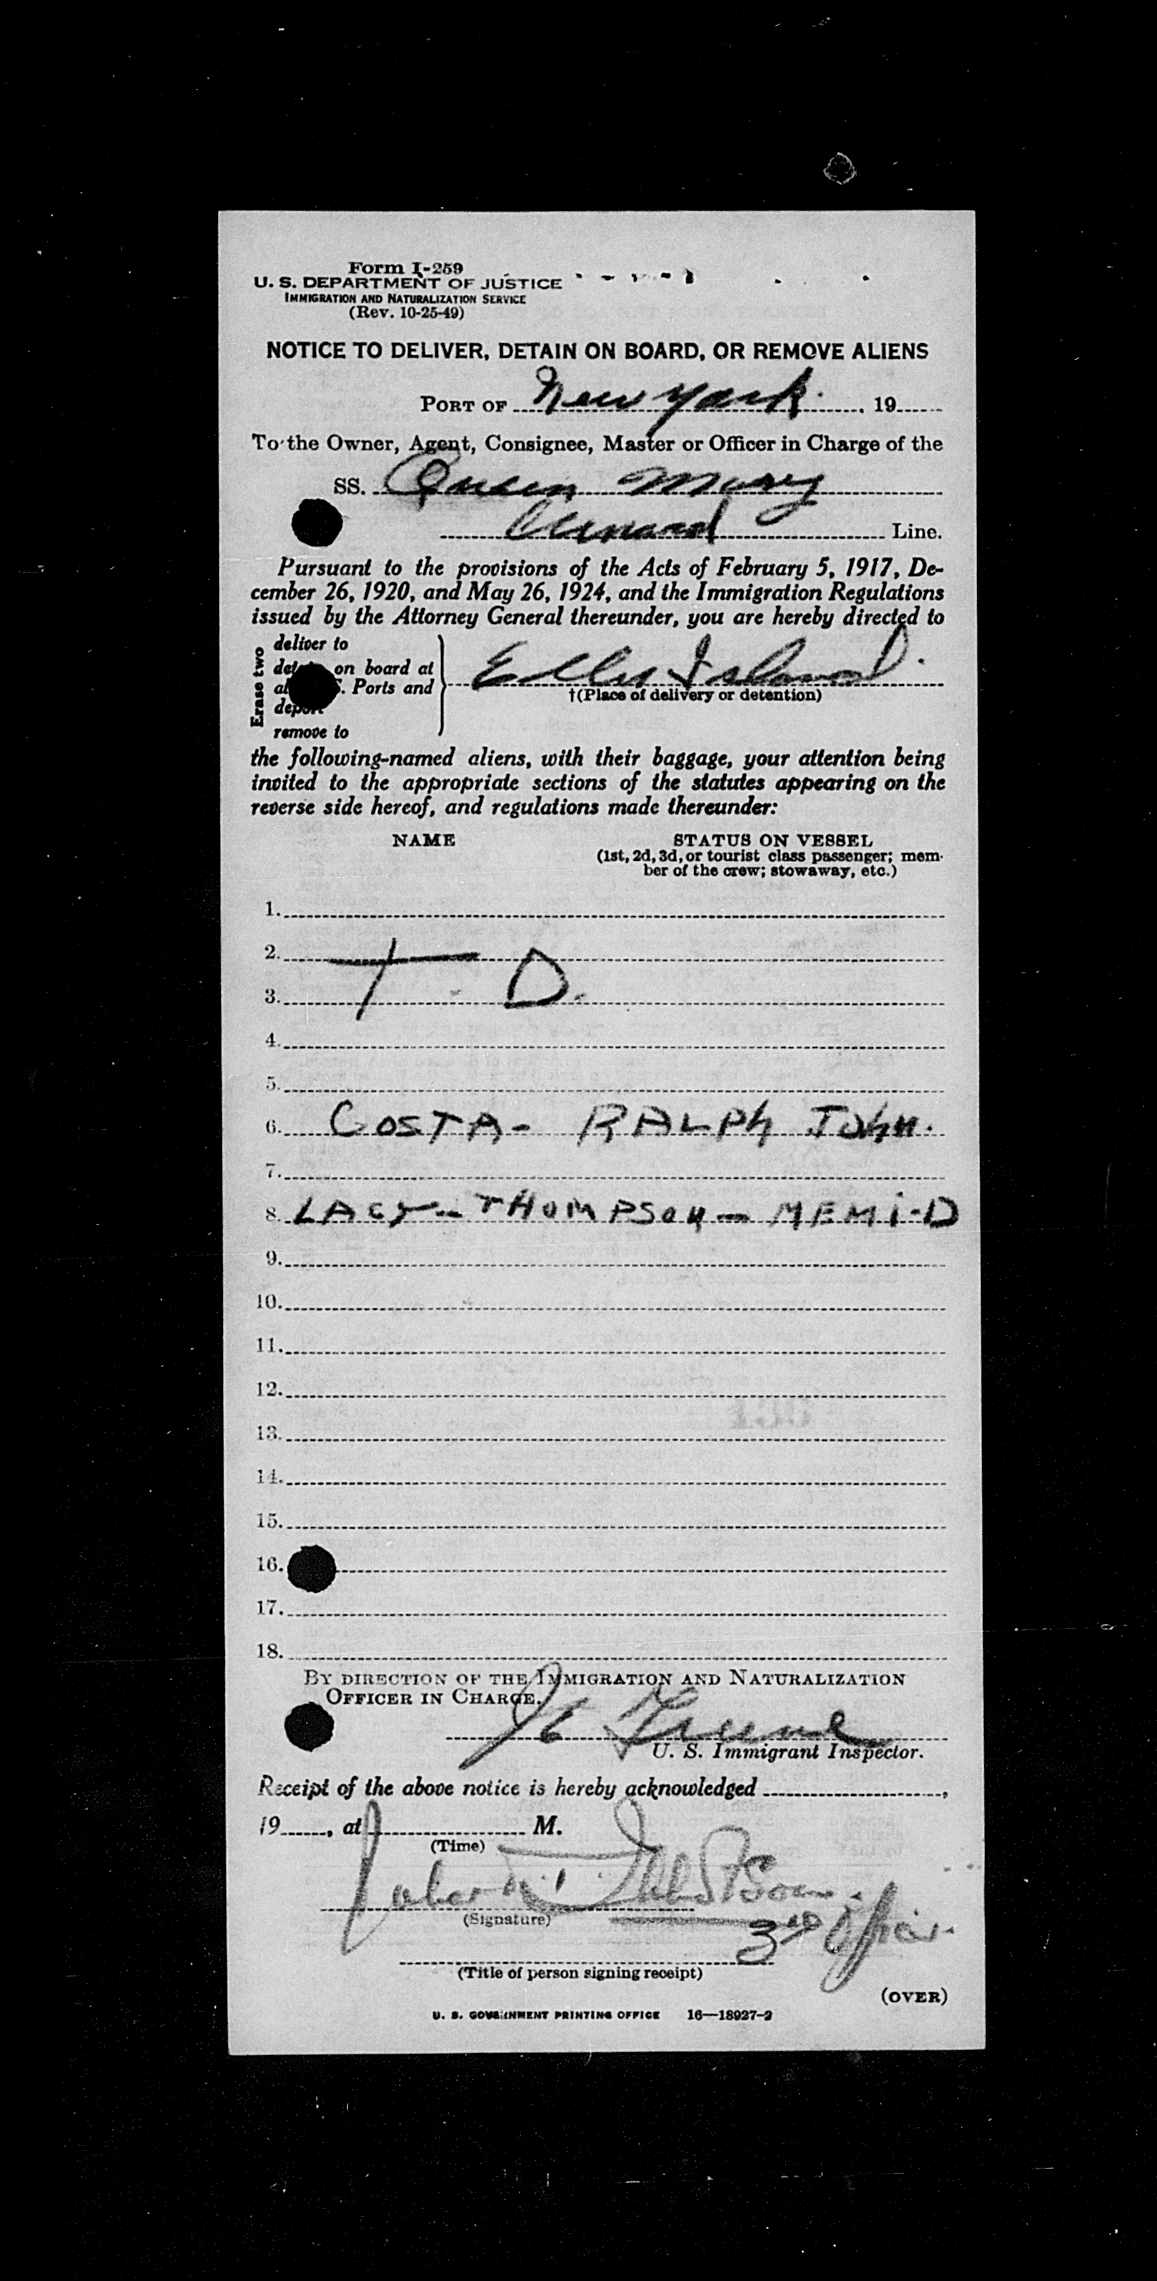 Form I-259
U. S. DEPARTMENT OF JUSTICE
IMMIGRATION AND NATURALIZATION SERVICE
(Rev. 10-25-49)
NOTICE TO DELIVER, DETAIN ON BOARD, OR REMOVE ALIENS
PORT OF New York, 19
To the Owner, Agent, Consignee, Master or Officer in Charge of the
SS. Queen Mary
Cunard Line.
Pursuant to the provisions of the Acts of February 5, 1917, De-
cember 26, 1920, and May 26, 1924, and the Immigration Regulations
issued by the Attorney General thereunder, you are hereby directed to
Erase two
deliver to
on board at
Ports and
remove to
Ellis Island
†(Place of delivery or detention)
the following-named aliens, with their baggage, your attention being
invited to the appropriate sections of the statutes appearing on the
reverse side hereof, and regulations made thereunder:
NAME STATUS ON VESSEL
(1st, 2d, 3d, or tourist class passenger; mem-
ber of the crew; stowaway, etc.)
1.
2.
T. D.
3.
4.
5.
6. COSTA - RALPh John.
7.
8. LACY - THOMPSON - MEMI-D
9.
10.
11.
12.
13.
14.
15.
16.
17.
18.
BY DIRECTION OF THE IMMIGRATION AND NATURALIZATION
OFFICER IN CHARGE.
U. S. Immigrant Inspector.
Receipt of the above notice is hereby acknowledged ,
19 , at M.
(Time)
(Signature)
3rd Officer.
(Title of person signing receipt)
(OVER)
U. S. GOVERNMENT PRINTING OFFICE 16—18927-2